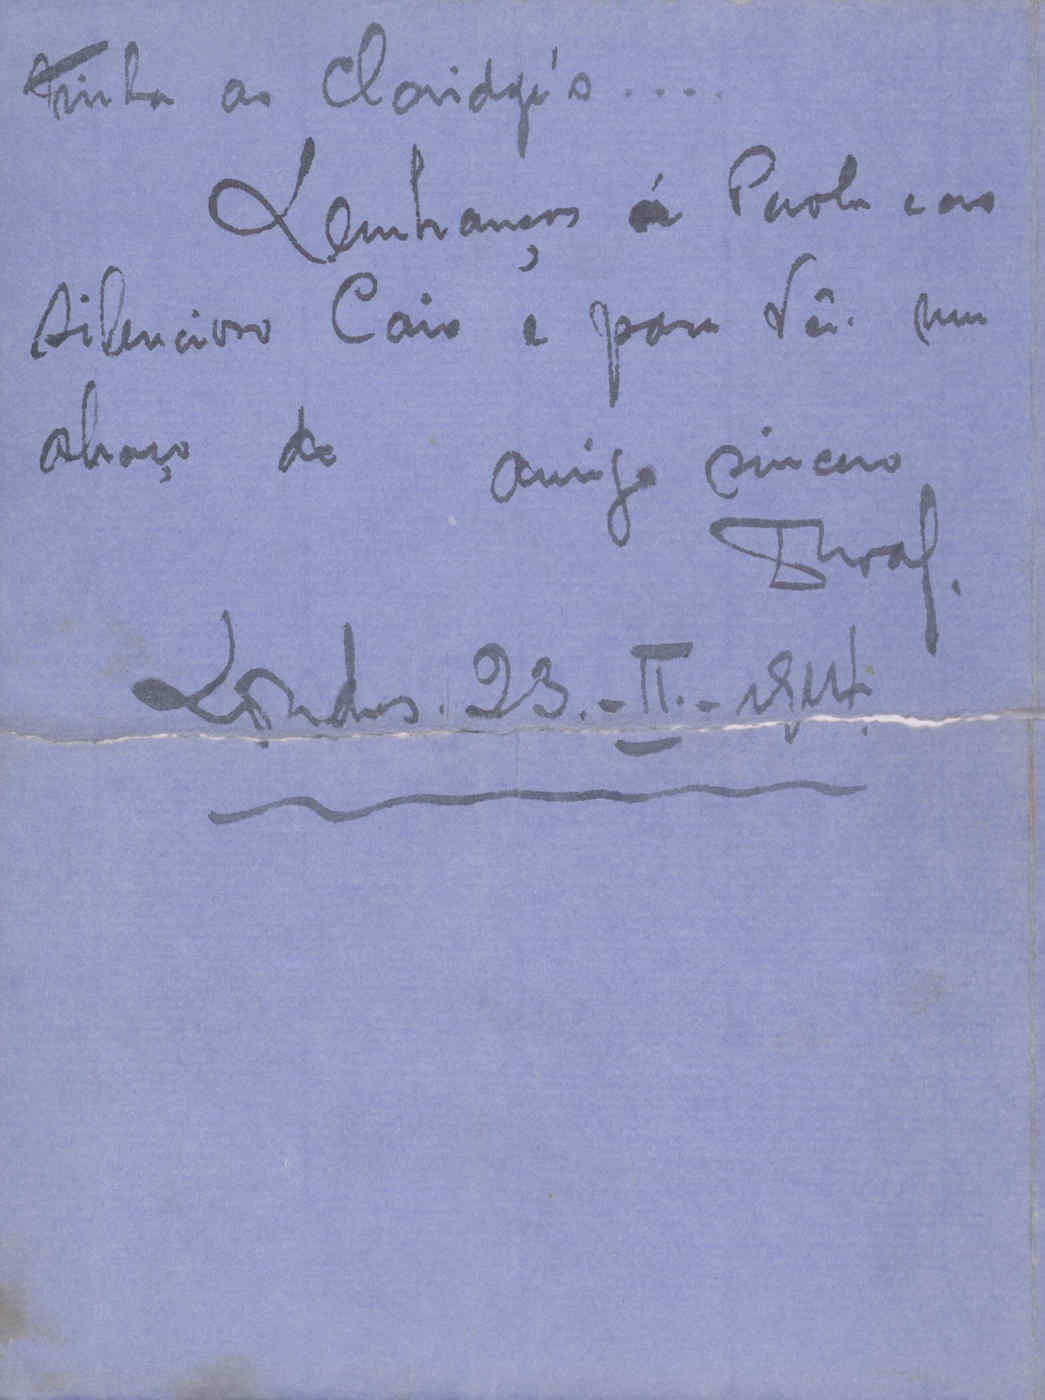 Tinha ao Claridge's .....
Lembranças á Paola e ao
silencioso Caio e para Vcê. um
abraço do amigo sincero
Londres. 23.-II.-1914.